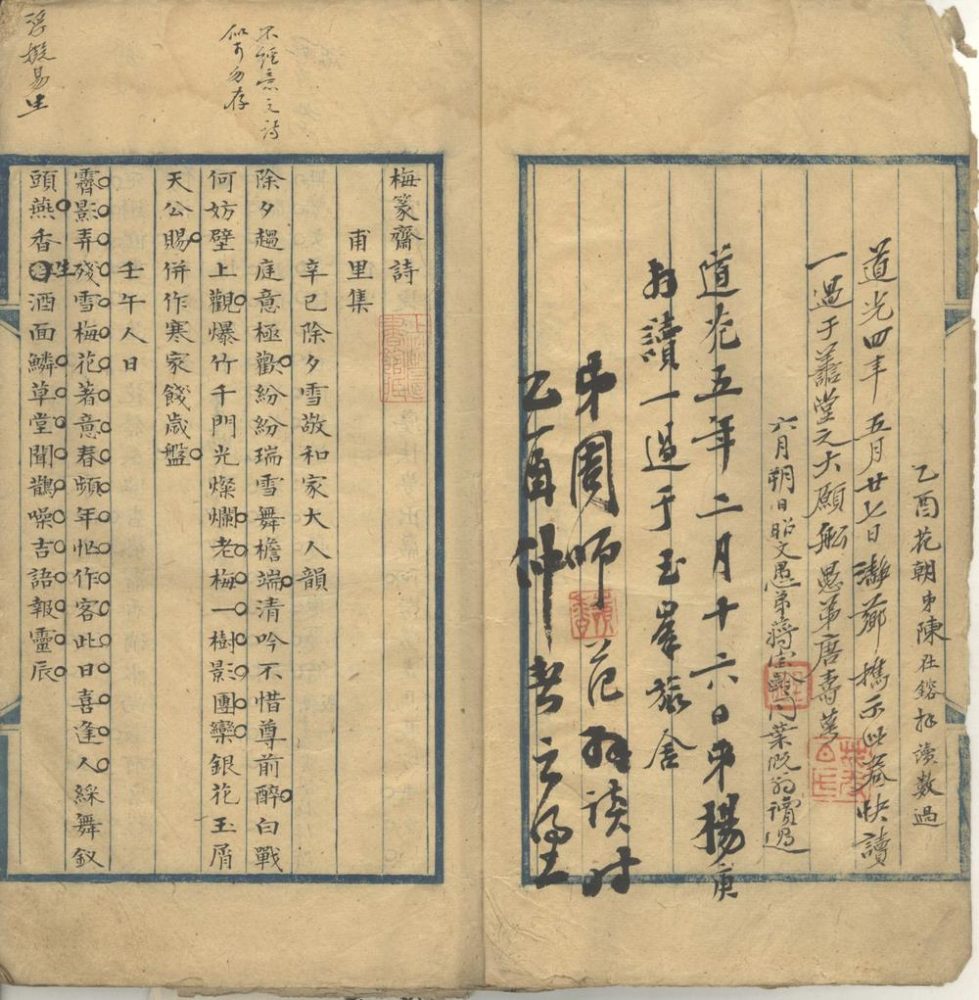 乙酉花朝弟陳在鎔拜讀數過
道光四年五月廿七日瀞薌攜示此卷快讀
一過于蕭堂之大願船愚弟唐壽萼
六月朔日昭文愚弟蔣寶齡同葉 讀過
道光五年二月十六日弟楊庚
拜讀一過于玉峯旅舍
弟周師范拜讀时
乙酉仲
梅篆齋詩
甫里集
辛巳除夕雪敬和家大人韻
除夕趨庭意極歡紛紛瑞雪舞檐端清吟不惜尊前醉白戰
何妨壁上觀爆竹千門光燦爛老梅一樹影團欒銀花玉屑
天公賜併作寒家餞歲盤
壬午人日
霽影弄殘雪梅花著意春頻年怊作客此日喜逢人綵舞釵
頭燕香生酒面鱗草堂聞鵲噪吉語報靈辰
不經意之詩
似可勿存
浮擬易生